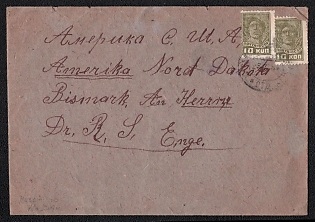 Америка С. Ш. А
Amerika Nord Dakota
Bismark, An Herrn
Dr. R. S. Enge.
10 КОП 10 КОП